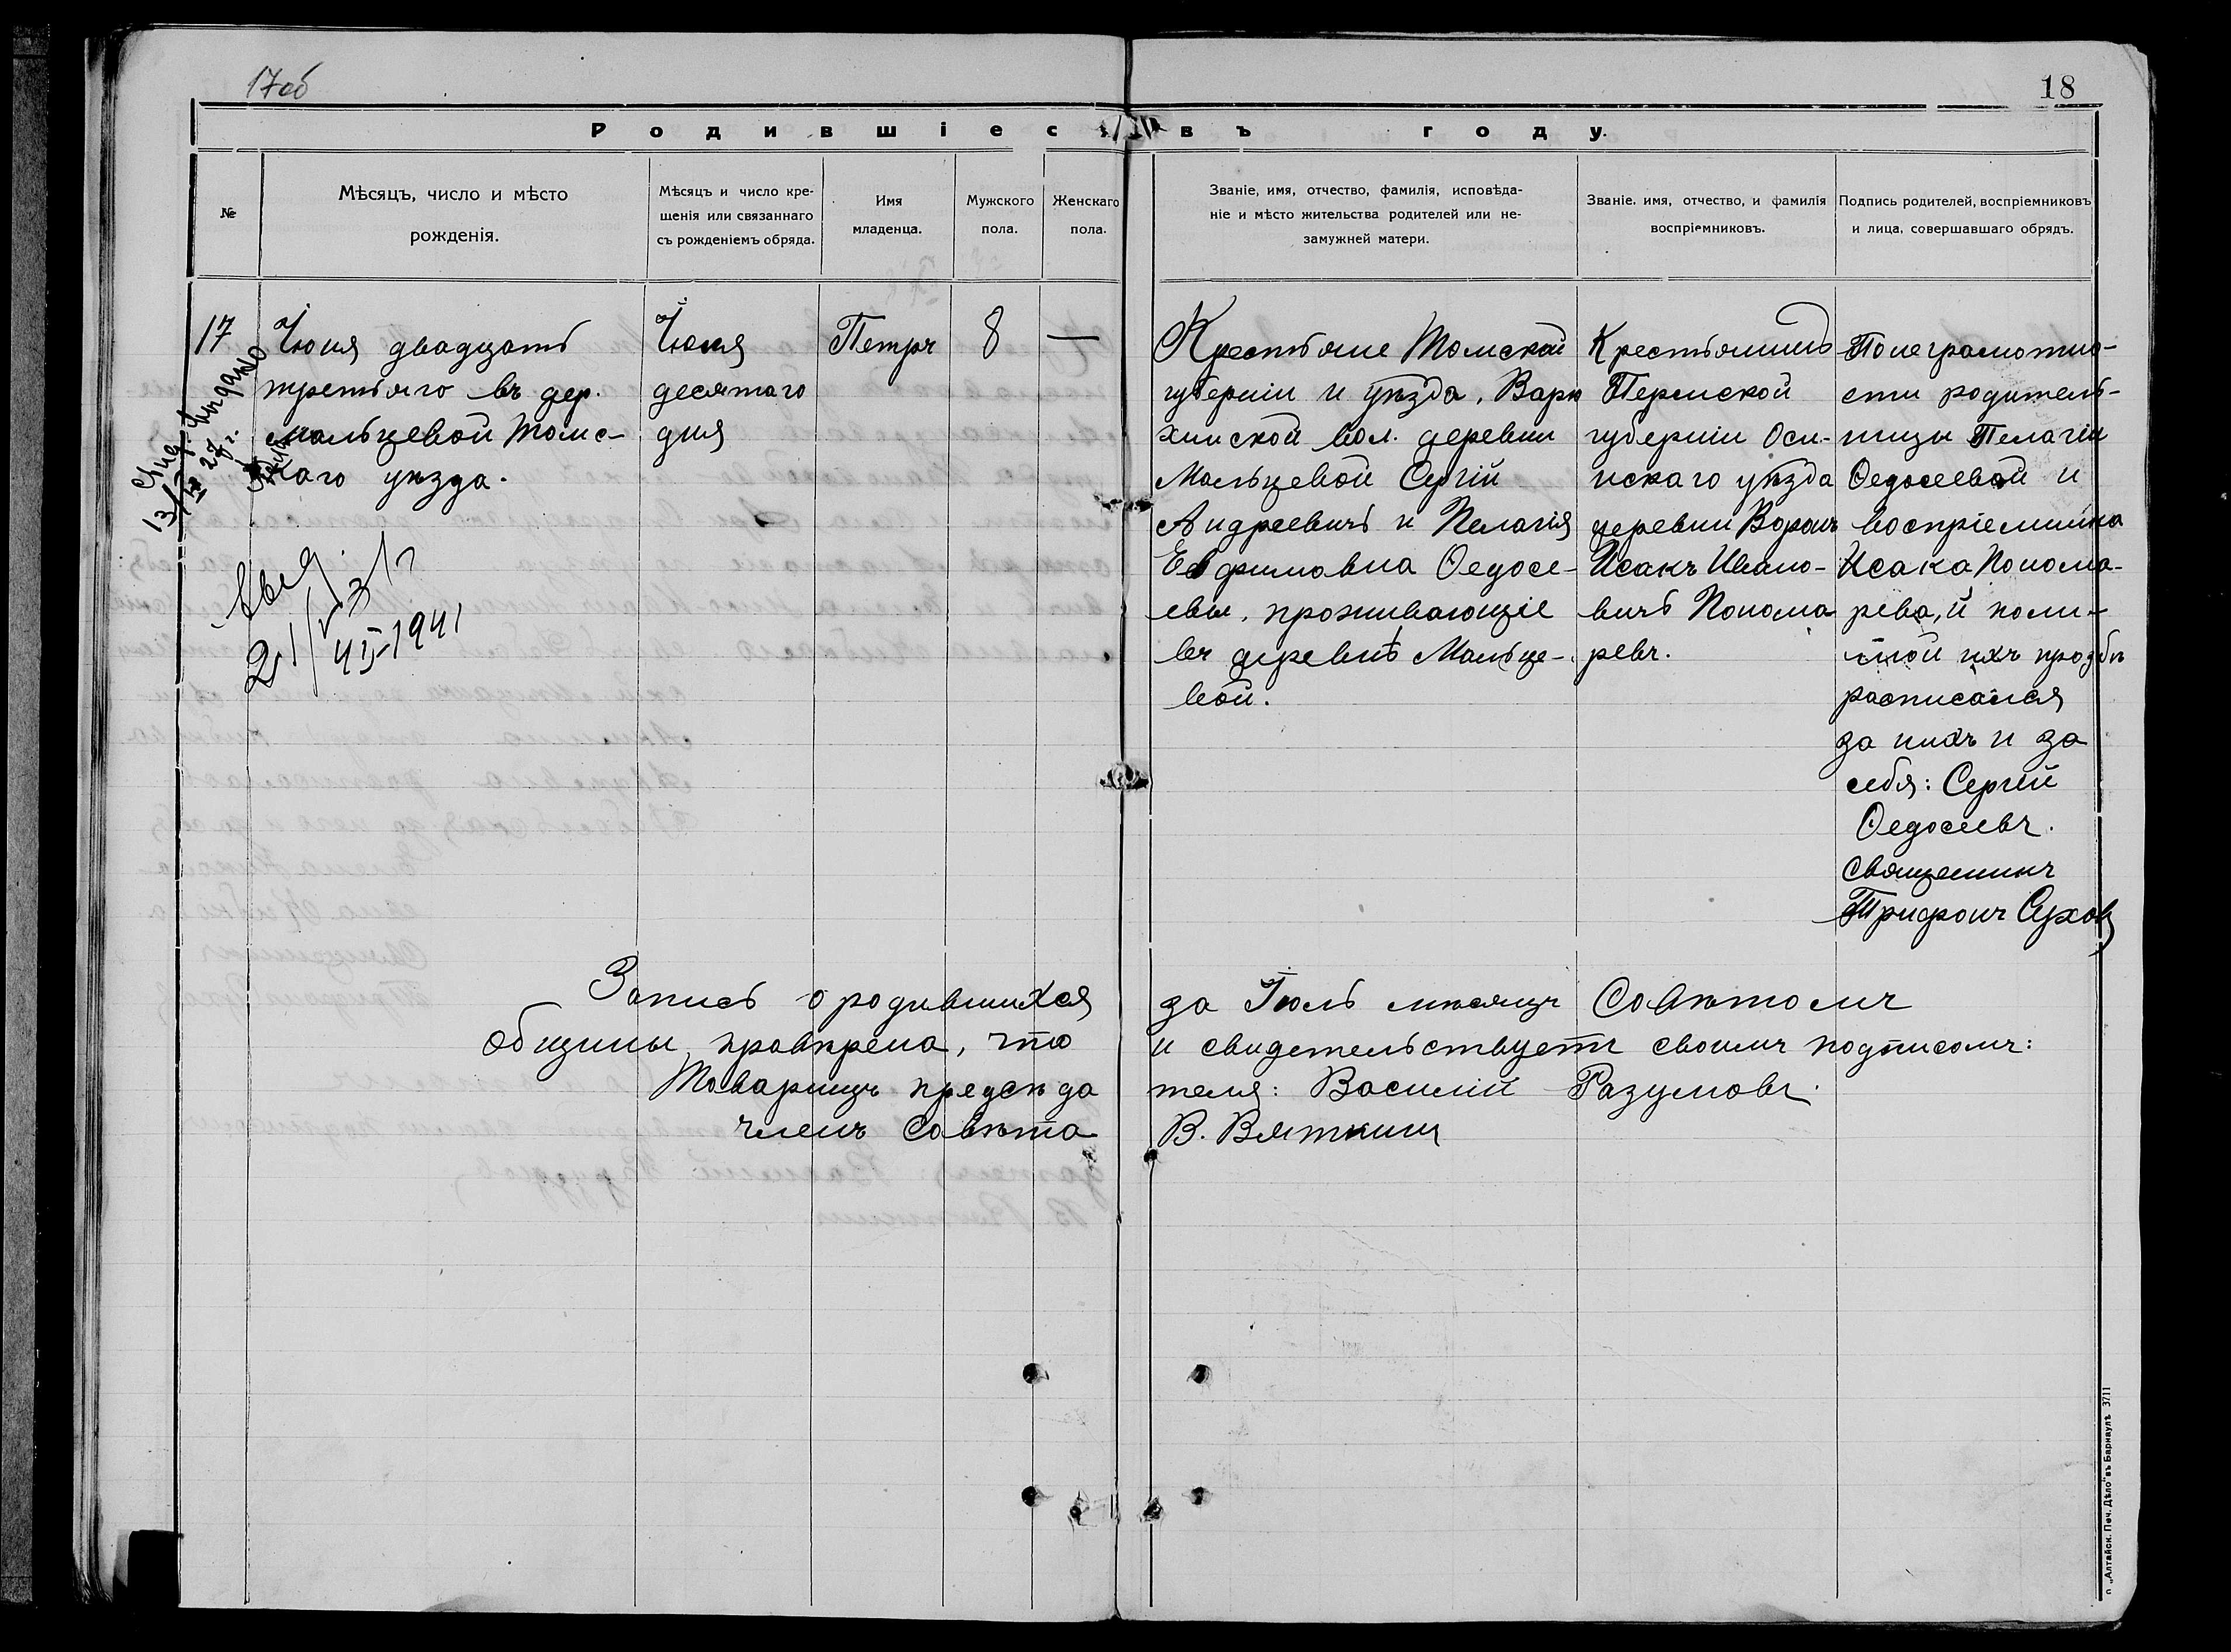 17об
18
Родившіеся въ году.
№
Мѣсяцъ, число и мѣсто
рожденія.
Мѣсяцъ и число кре-
щенія или связаннаго
съ рожденіемъ обряда.
Имя
младенца.
Мужского
пола.
Женскаго
пола.
Званіе, имя, отчество, фамилія, исповѣда-
ніе и мѣсто жительства родителей или не-
замужней матери.
Званіе. имя, отчество, и фамилія
воспріемниковъ.
Подпись родителей, воспріемниковъ
и лица, совершавшаго обрядъ.
17
Іюня двадцать
третьяго въ дер.
Мальцевой Томс-
каго уѣзда.
Іюля
десятаго
дня
Петръ
8
—
Крестьяне Томской
губерніи и уѣзда, Варю
хинской вол. деревни
Мальцевой Сергій
Андреевичъ и Пелагія
Евфимовна Ѳедосе-
евы, проживающіе
въ деревнѣ Мальце-
вой.
Крестьянинъ
Пермской
губерніи Оси-
нскаго уѣзда
деревни Воронъ
Исакъ Ивано-
вичъ Понома
ревъ.
По неграмотно-
сти родитель-
ницы Пелагіи
Ѳедосеевой и
воспріемника
Исака Понома-
рева, и по ли-
чной ихъ прозбѣ
расписался
за нихъ и за
себя: Сергей
Ѳедосеевъ.
Священникъ
Трифонъ Сухов
13/II 27 г.
21/
4II-1941
Запись о родившихся за Іюль мѣсяцъ Совѣтомъ
общины провѣрена, что и свидетельствуетъ своимъ подписомъ:
Товарищъ предсѣдателя: Василій Разумовъ.
членъ Совѣта В. Вяткинъ
п. „Алтайск. Печ. Дѣло" въ Барнаулѣ 3711